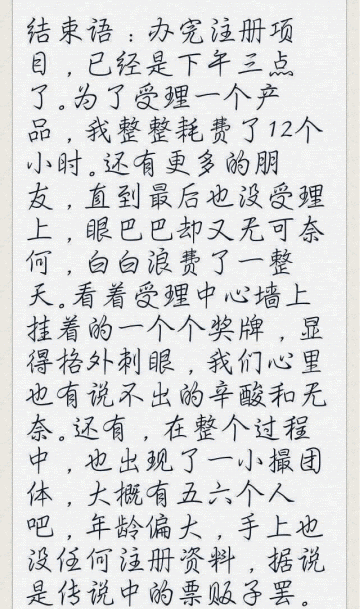 结束语：办完注册项
目，已经是下午三点
了。为了受理一个产
品，我整整耗费了12个
小时。还有更多的朋
友，直到最后也没受理
上，眼巴巴却又无可奈
何，白白浪费了一整
天。看着受理中心墙上
挂着的一个个奖牌，显
得格外刺眼，我们心里
也有说不出的辛酸和无
奈。还有，在整个过程
中，也出现了一小撮团
体，大概有五六个人
吧，年龄偏大，手上也
没任何注册资料，据说
是传说中的票贩子罢。